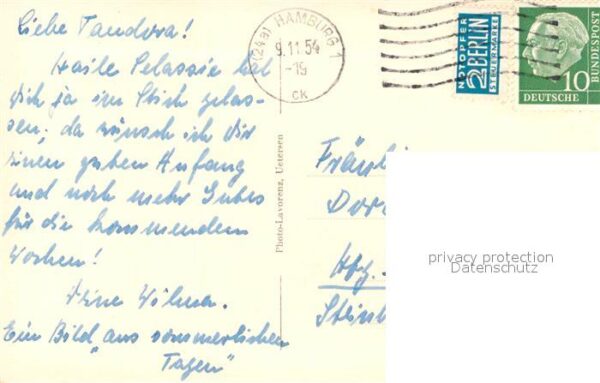 Liebe Tandora!
Haile Selassie hat
Dich ja im Stich gelas-
sen; da wünsch ich Dir
einen guten Anfang
und noch mehr Gutes
für die kommenden
Wochen!
Deine Wilma.
Ein Bild „aus sommerlichen
Tagen"
(24a) HAMBURG 1
9.11.54
-19
CK
NOTOPFER
2 BERLIN
STEUERMARKE
10
DEUTSCHE
BUNDESPOST
Photo-Lavorenz, Uetersen
Fräulein
Hbg.
privacy protection
Datenschutz